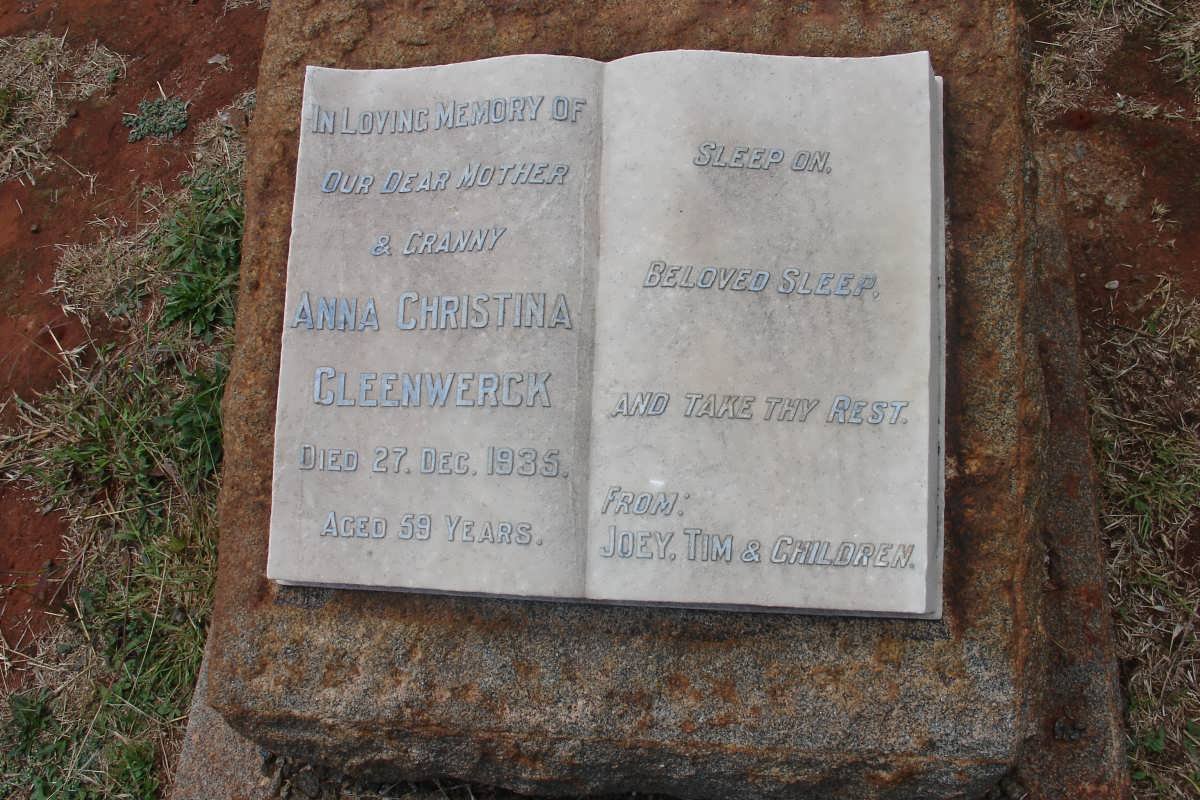 In Loving Memory of
our Dear Mother
& Granny
Anna Christina
Gleenwerck
Died 27. Dec. 1935.
Aged 59 Years.
Sleep on,
Beloved Sleep,
and take thy Rest.
From:
Joey, Tim & Children.